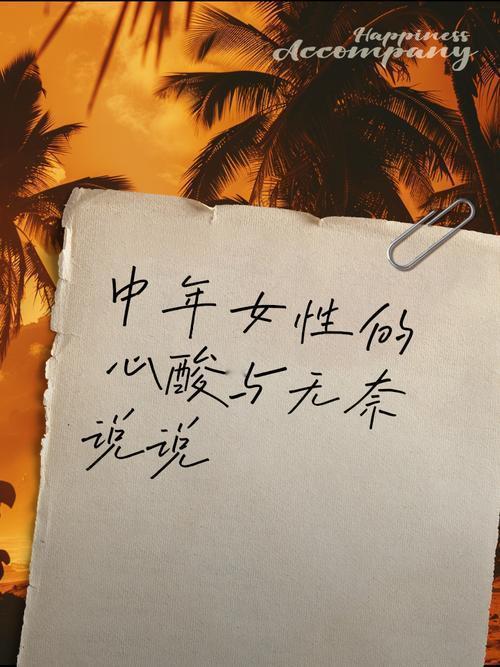 Happiness
Accompany
中年女性的
心酸与无奈
说说